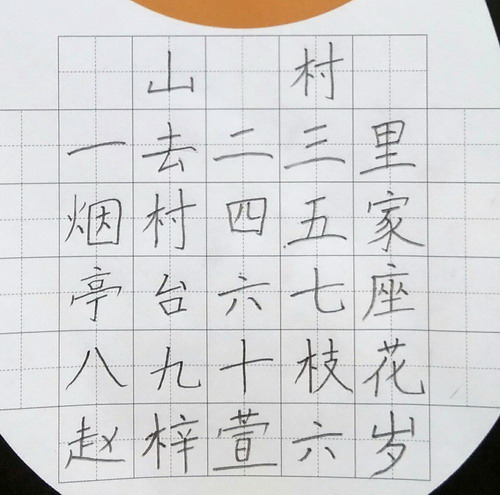 山村
一去二三里
烟村四五家
亭台六七座
八九十枝花
赵梓萱六岁